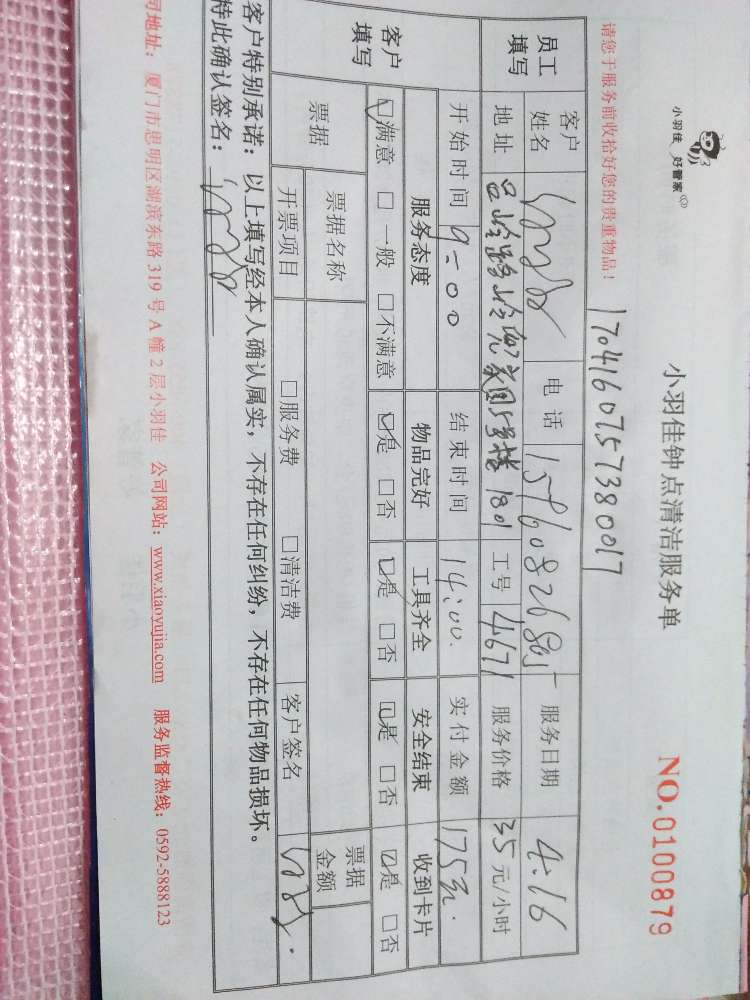 小羽佳 好管家
小羽佳钟点清洁服务单
NO.0100879
请您于服务前收拾好您的贵重物品！
1704160757380017
员工填写 客户姓名 电话 服务日期 4.16
地址 5号楼1801 工号 4671 服务价格 35元/小时
客户填写 开始时间 9:00 结束时间 14:00. 实付金额 175元.
服务态度 物品完好 工具齐全 安全结束 收到卡片
☑满意 □一般 □不满意 ☑是 □否 ☑是 □否 ☑是 □否 ☑是 □否
票据 票据名称 票据金额
开票项目 □服务费 □清洁费 客户签名
客户特别承诺：以上填写经本人确认属实，不存在任何纠纷，不存在任何物品损坏。
特此确认签名：
司地址：厦门市思明区湖滨东路319号A幢2层小羽佳 公司网站：www.xiaoyujia.com 服务监督热线：0592-5888123